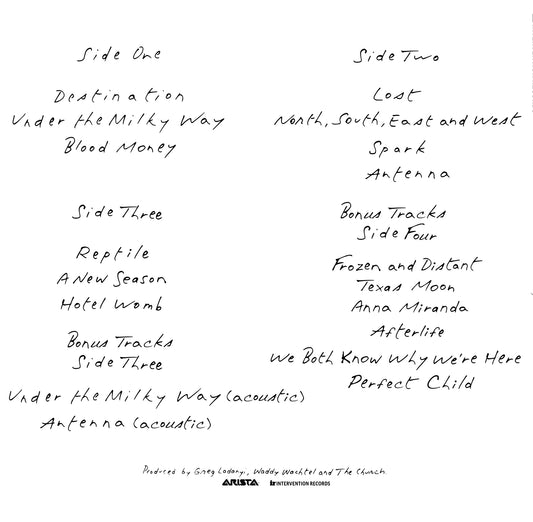 Side One
Destination
Under the Milky Way
Blood Money
Side Two
Lost
North, South, East and West
Spark
Antenna
Side Three
Reptile
A New Season
Hotel Womb
Bonus Tracks
Side Three
Under the Milky Way (acoustic)
Antenna (acoustic)
Bonus Tracks
Side Four
Frozen and Distant
Texas Moon
Anna Miranda
Afterlife
We Both Know Why We're Here
Perfect Child
Produced by Greg Ladany., Waddy Wachtel and The Church.
ARISTA ir INTERVENTION RECORDS